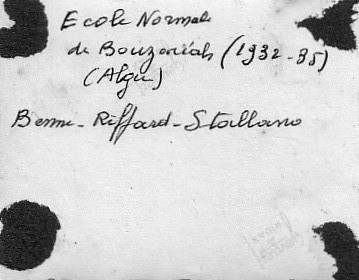 Ecole Normale
de Bouzaréah (1932-35)
(Alger)
Benne-Riffard-Stallano